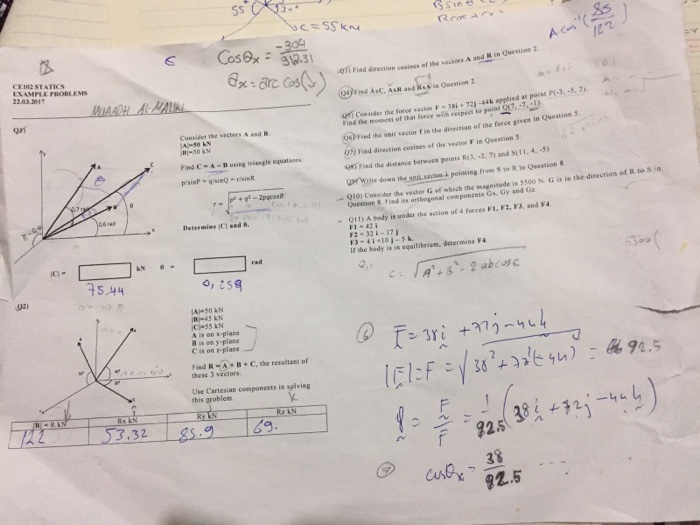 55
C=55KN
B sin
A cos⁻¹(85/122)
Cosθx = -304/312.31
θx = arc cos( )
CE102 STATICS
EXAMPLE PROBLEMS
22.03.2017
MUAADH AL-MALIKI
Q1)
Consider the vectors A and B.
|A|=50 kN
|B|=30 kN
Find C=A+B using triangle equations:
p/sinP = q/sinQ = r/sinR
r = √p² + q² - 2pqcosR
Determine |C| and θ.
A
C
B
0.6 rad
θ
|C| =
kN
θ =
rad
75.44
0,259
Q2)
|A|=50 kN
|B|=45 kN
|C|=55 kN
A is on x-plane
B is on y-plane
C is on z-plane
Find R = A + B + C, the resultant of
these 3 vectors.
Use Cartesian components in solving
this problem.
|R| = R kN
Rx kN
Ry kN
Rz kN
122
53.32
85.9
69.
Q3) Find direction cosines of the vectors A and R in Question 2.
Q4) Find AxC, AxR and RxA in Question 2
Q5) Consider the force vector F = 38i + 72j -44k applied at point P(-3, -5, 2)
Find the moment of that force with respect to point Q(7, -7, -1).
Q6) Find the unit vector f in the direction of the force given in Question 5.
Q7) Find direction cosines of the vector F in Question 5
Q8) Find the distance between points R(3, -2, 7) and S(11, 4, -5)
Q9) Write down the unit vector λ pointing from S to R in Question 8.
Q10) Consider the vector G of which the magnitude is 5500 N. G is in the direction of R to S in
Question 8. Find its orthogonal components Gx, Gy and Gz.
Q11) A body is under the action of 4 forces F1, F2, F3, and F4.
F1 = 42 i
F2 = -32 i - 17 j
F3 = 4 i +10 j - 3 k
If the body is in equilibrium, determine F4
C = √A² + B² - 2abcosc
6 F = 38i + 72j - 44k
|F| = F = √38² + 72² (-44)² = 92.5
f = F/F = 1/92.5 (38i + 72j - 44k)
7 cosθx = 38/92.5 ...